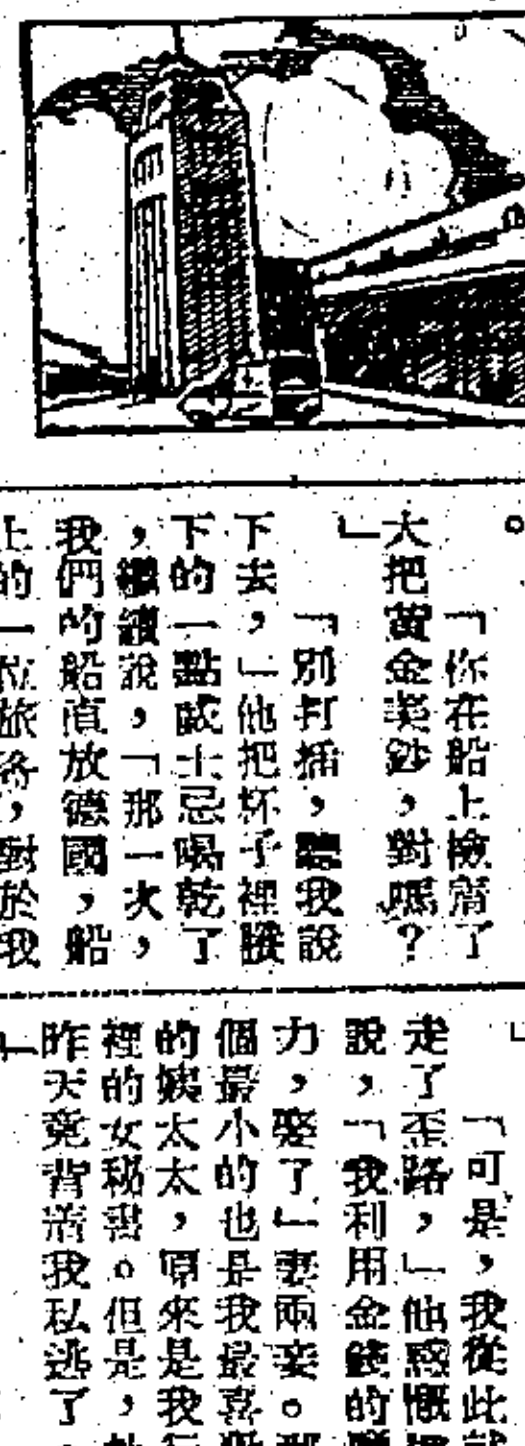 。
「你在船上檢着了
大把黃金美鈔,對嗎?
」
「別打插,聽我說
下去,」他把坏子裡賸
下的一點威士忌喝乾了
,繼續說,「那一次,
我們的船直放德國,船
上的一位旅客,對於我
」
「可是,我從此
走了歪路,」他感慨
說,「我利用金錢的
力,娶了一妻兩妾。那
個最小的也是我最喜
的姨太太,原來是我行
裡的女秘書。但是,
昨天竟背着我私逃了。
」